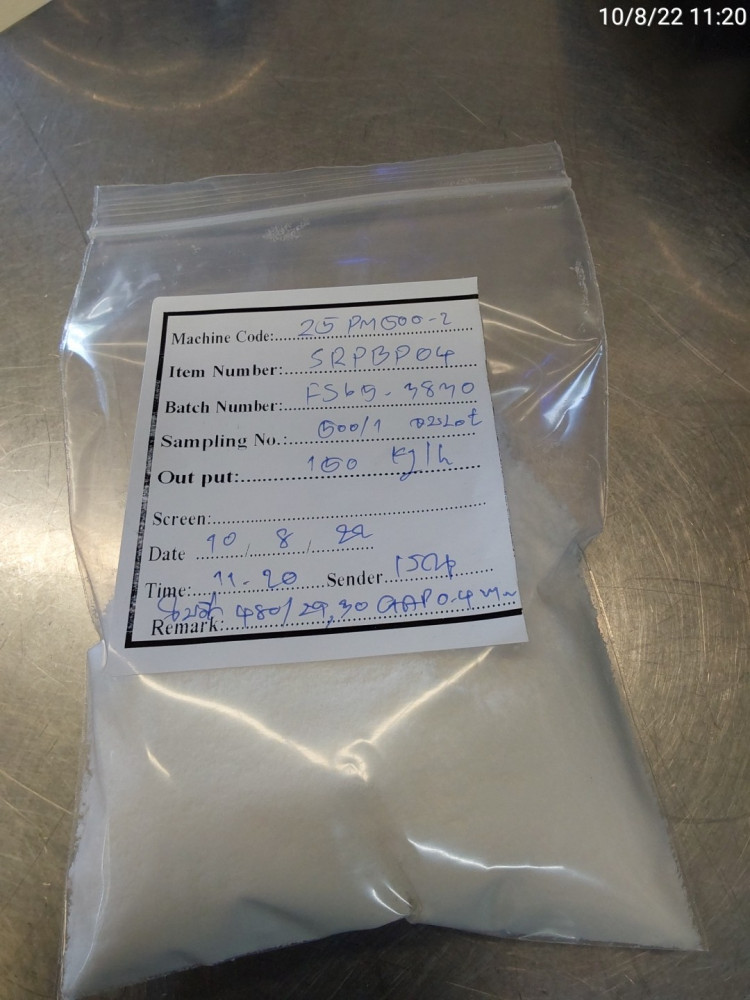 10/8/22 11:20
Machine Code: 25 PM600-2
Item Number: SRPBP04
Batch Number: FS65-3830
Sampling No.: 600/1
Out put: 150 kg/h
Screen:
Date 10 / 8 / 22
Time: 11-20 Sender
480/29,30 0.4
Remark: